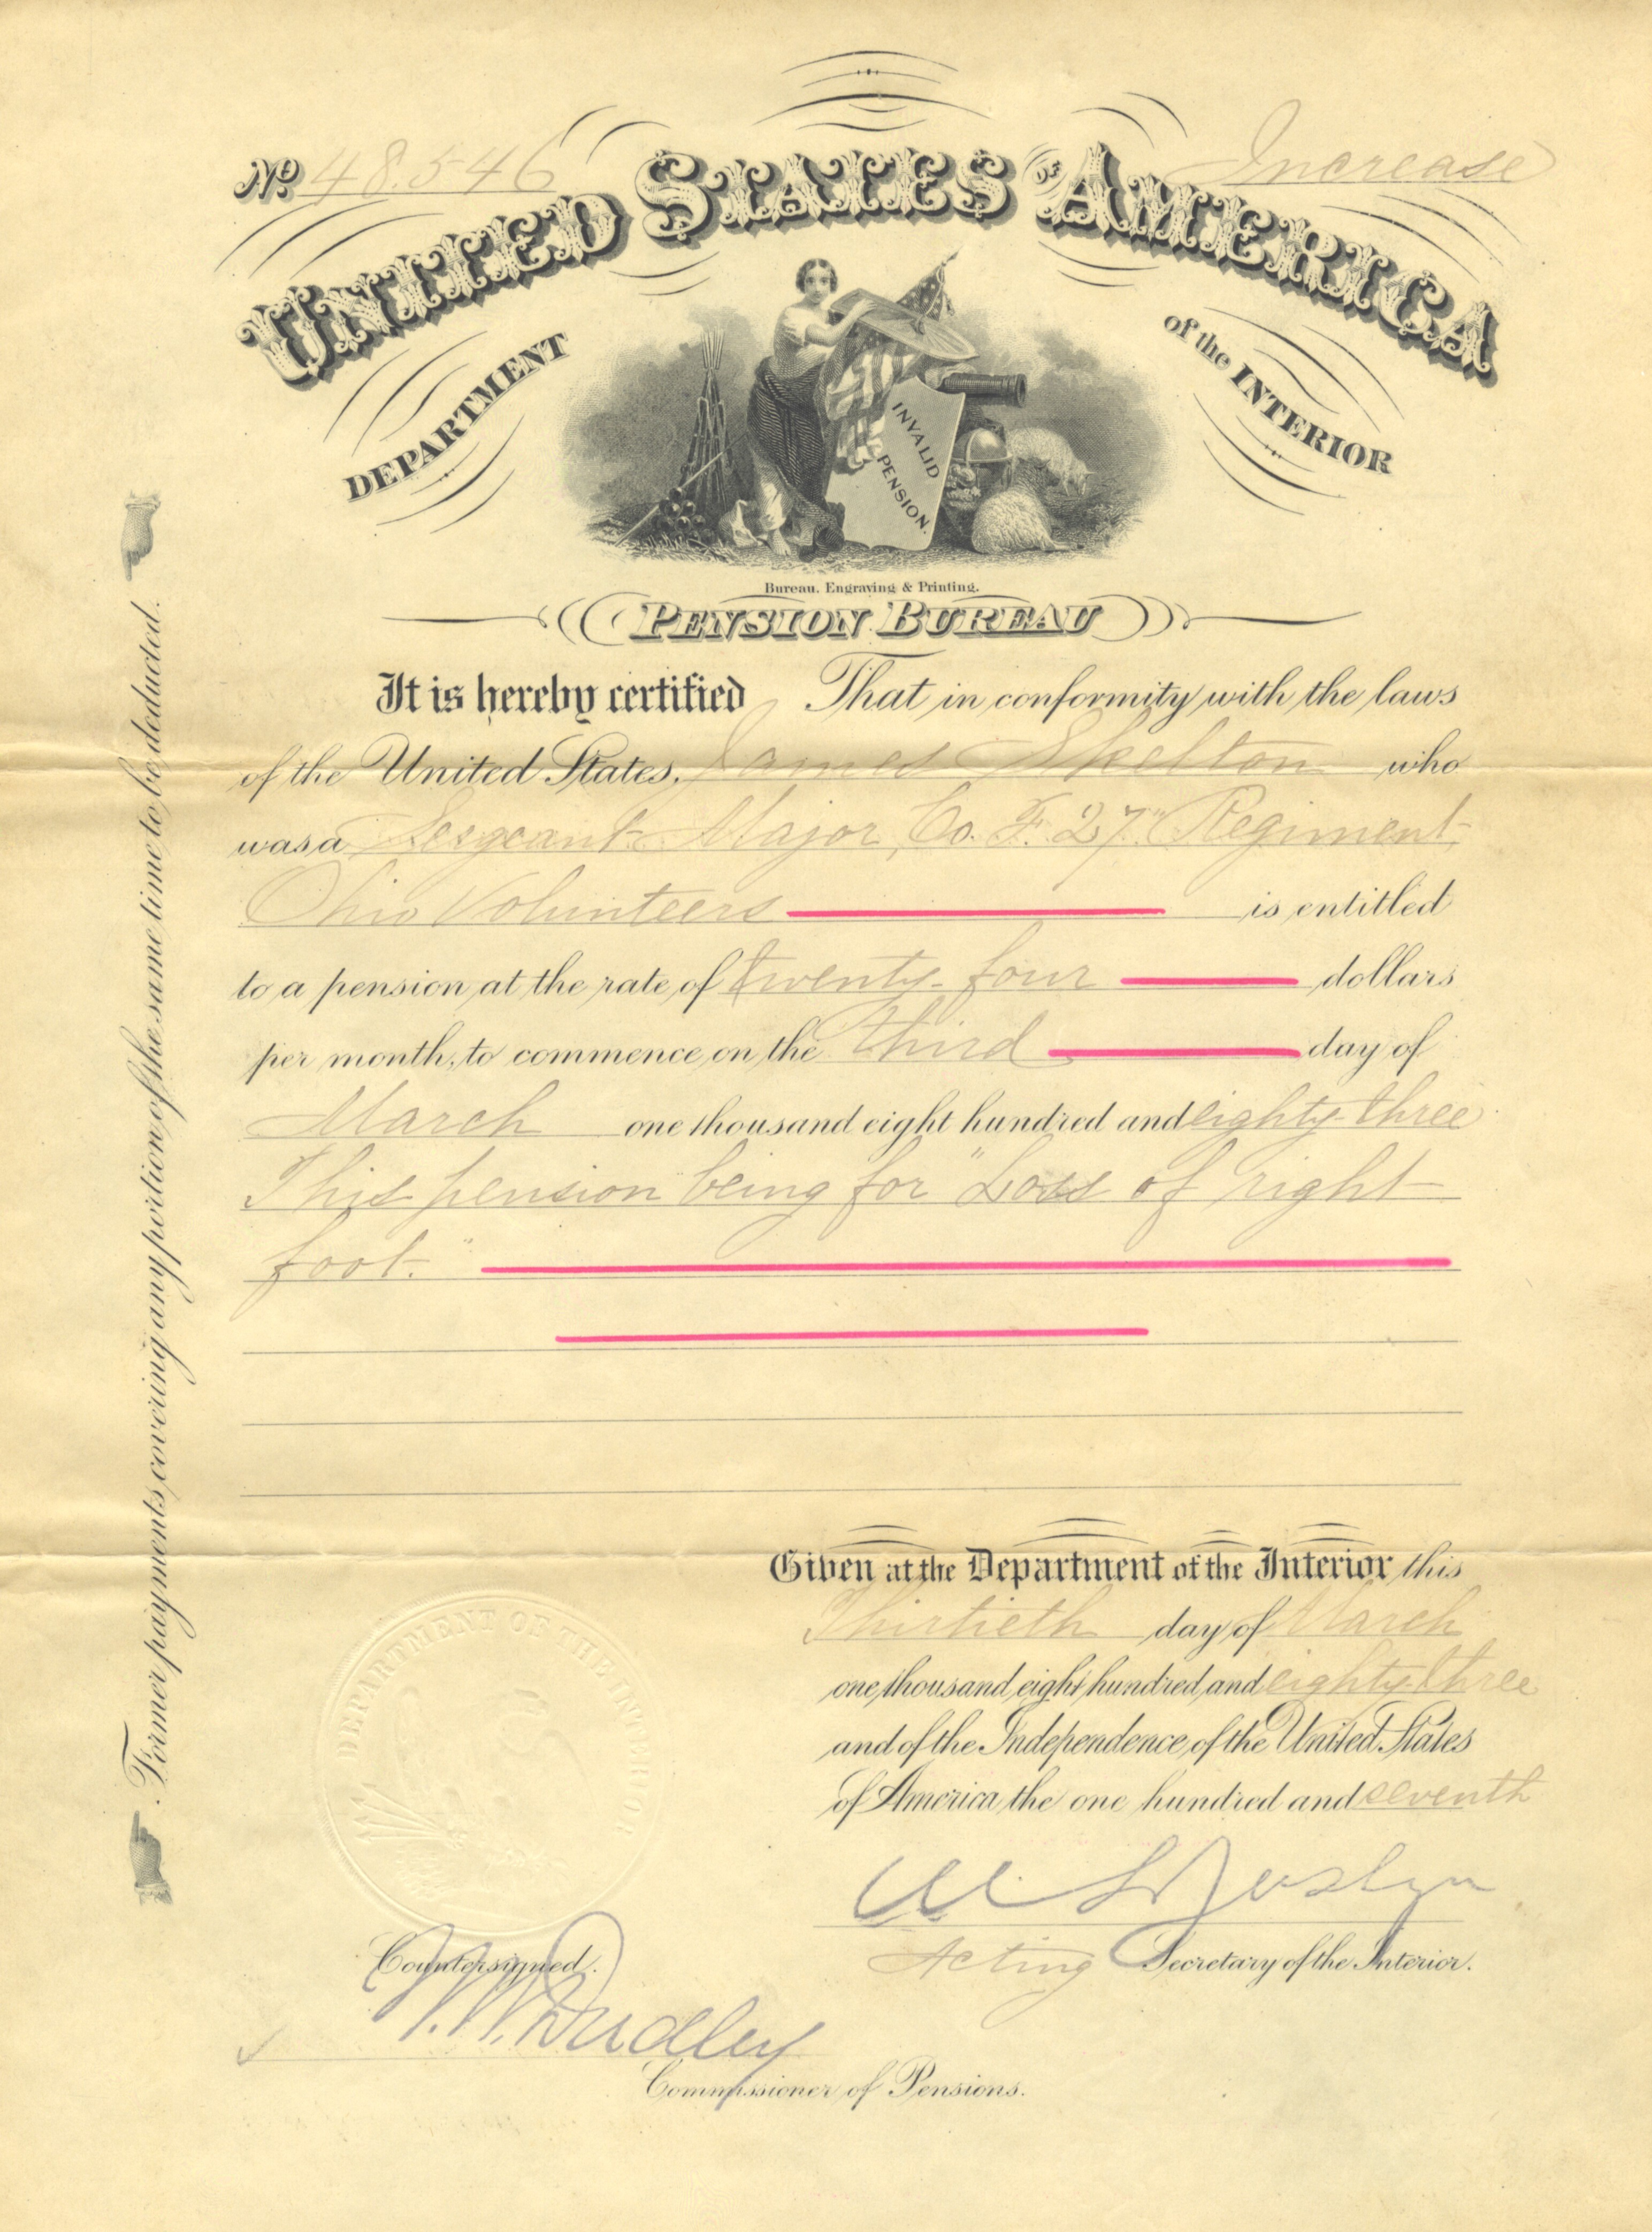 No 48.546
Increase
UNITED STATES OF AMERICA
DEPARTMENT of the INTERIOR
INVALID
PENSION.
Bureau, Engraving & Printing.
PENSION BUREAU
It is hereby certified That in conformity with the laws
of the United States, James Skelton who
was a Sergeant Major, Co. F. 27" Regiment
Ohio Volunteers is entitled
to a pension at the rate of twenty-four dollars
per month, to commence on the third day of
March one thousand eight hundred and eighty-three
This pension being for "Loss of right
foot."
Given at the Department of the Interior this
Thirtieth day of March
one thousand eight hundred and eighty-three
and of the Independence of the United States
of America the one hundred and seventh
Acting Secretary of the Interior.
Countersigned.
W.W. Dudley
Commissioner of Pensions.
Former payments covering any portion of the same time to be deducted.
DEPARTMENT OF THE INTERIOR